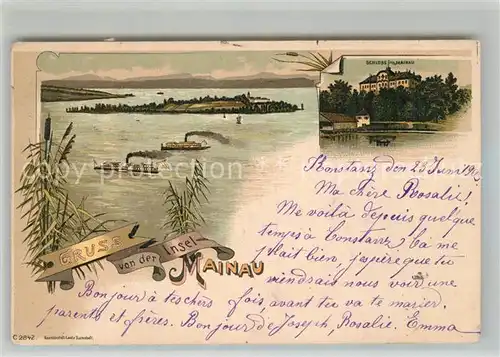 SCHLOSS MAINAU
Konstanz den 25 Juni
Ma chère Rosalie!
Me voilà depuis quelque
temps à Constanz. Ca me
plait bien, j'espère que tu
viendrais nous voir une
fois, avant tu va te marier.
GRUSS
von der Insel
MAINAU
Bonjour à tes chers
parents et frères. Bonjour de Joseph, Rosalie. Emma
C 2842